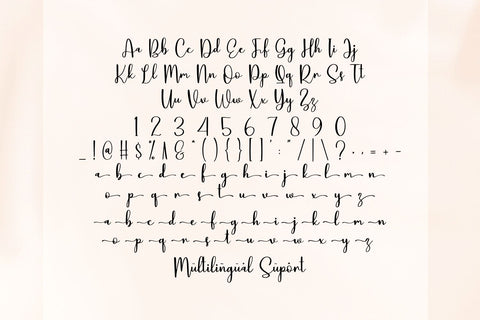 Aa Bb Cc Dd Ee Ff Gg Hh Ii Jj
Kk Ll Mm Nn Oo Pp Qq Rr Ss Tt
Uu Vv Ww Xx Yy Zz
1 2 3 4 5 6 7 8 9 0
_ ! @ # $ % ^ & * ( ) { } [ ] ' : " / | \ ? . , = + -
a b c d e f g h i j k l m n
o p q r s t u v w x y z
a b c d e f g h i j k l m n
o p q r s t u v w x y z
Mültilingüäl Süpört